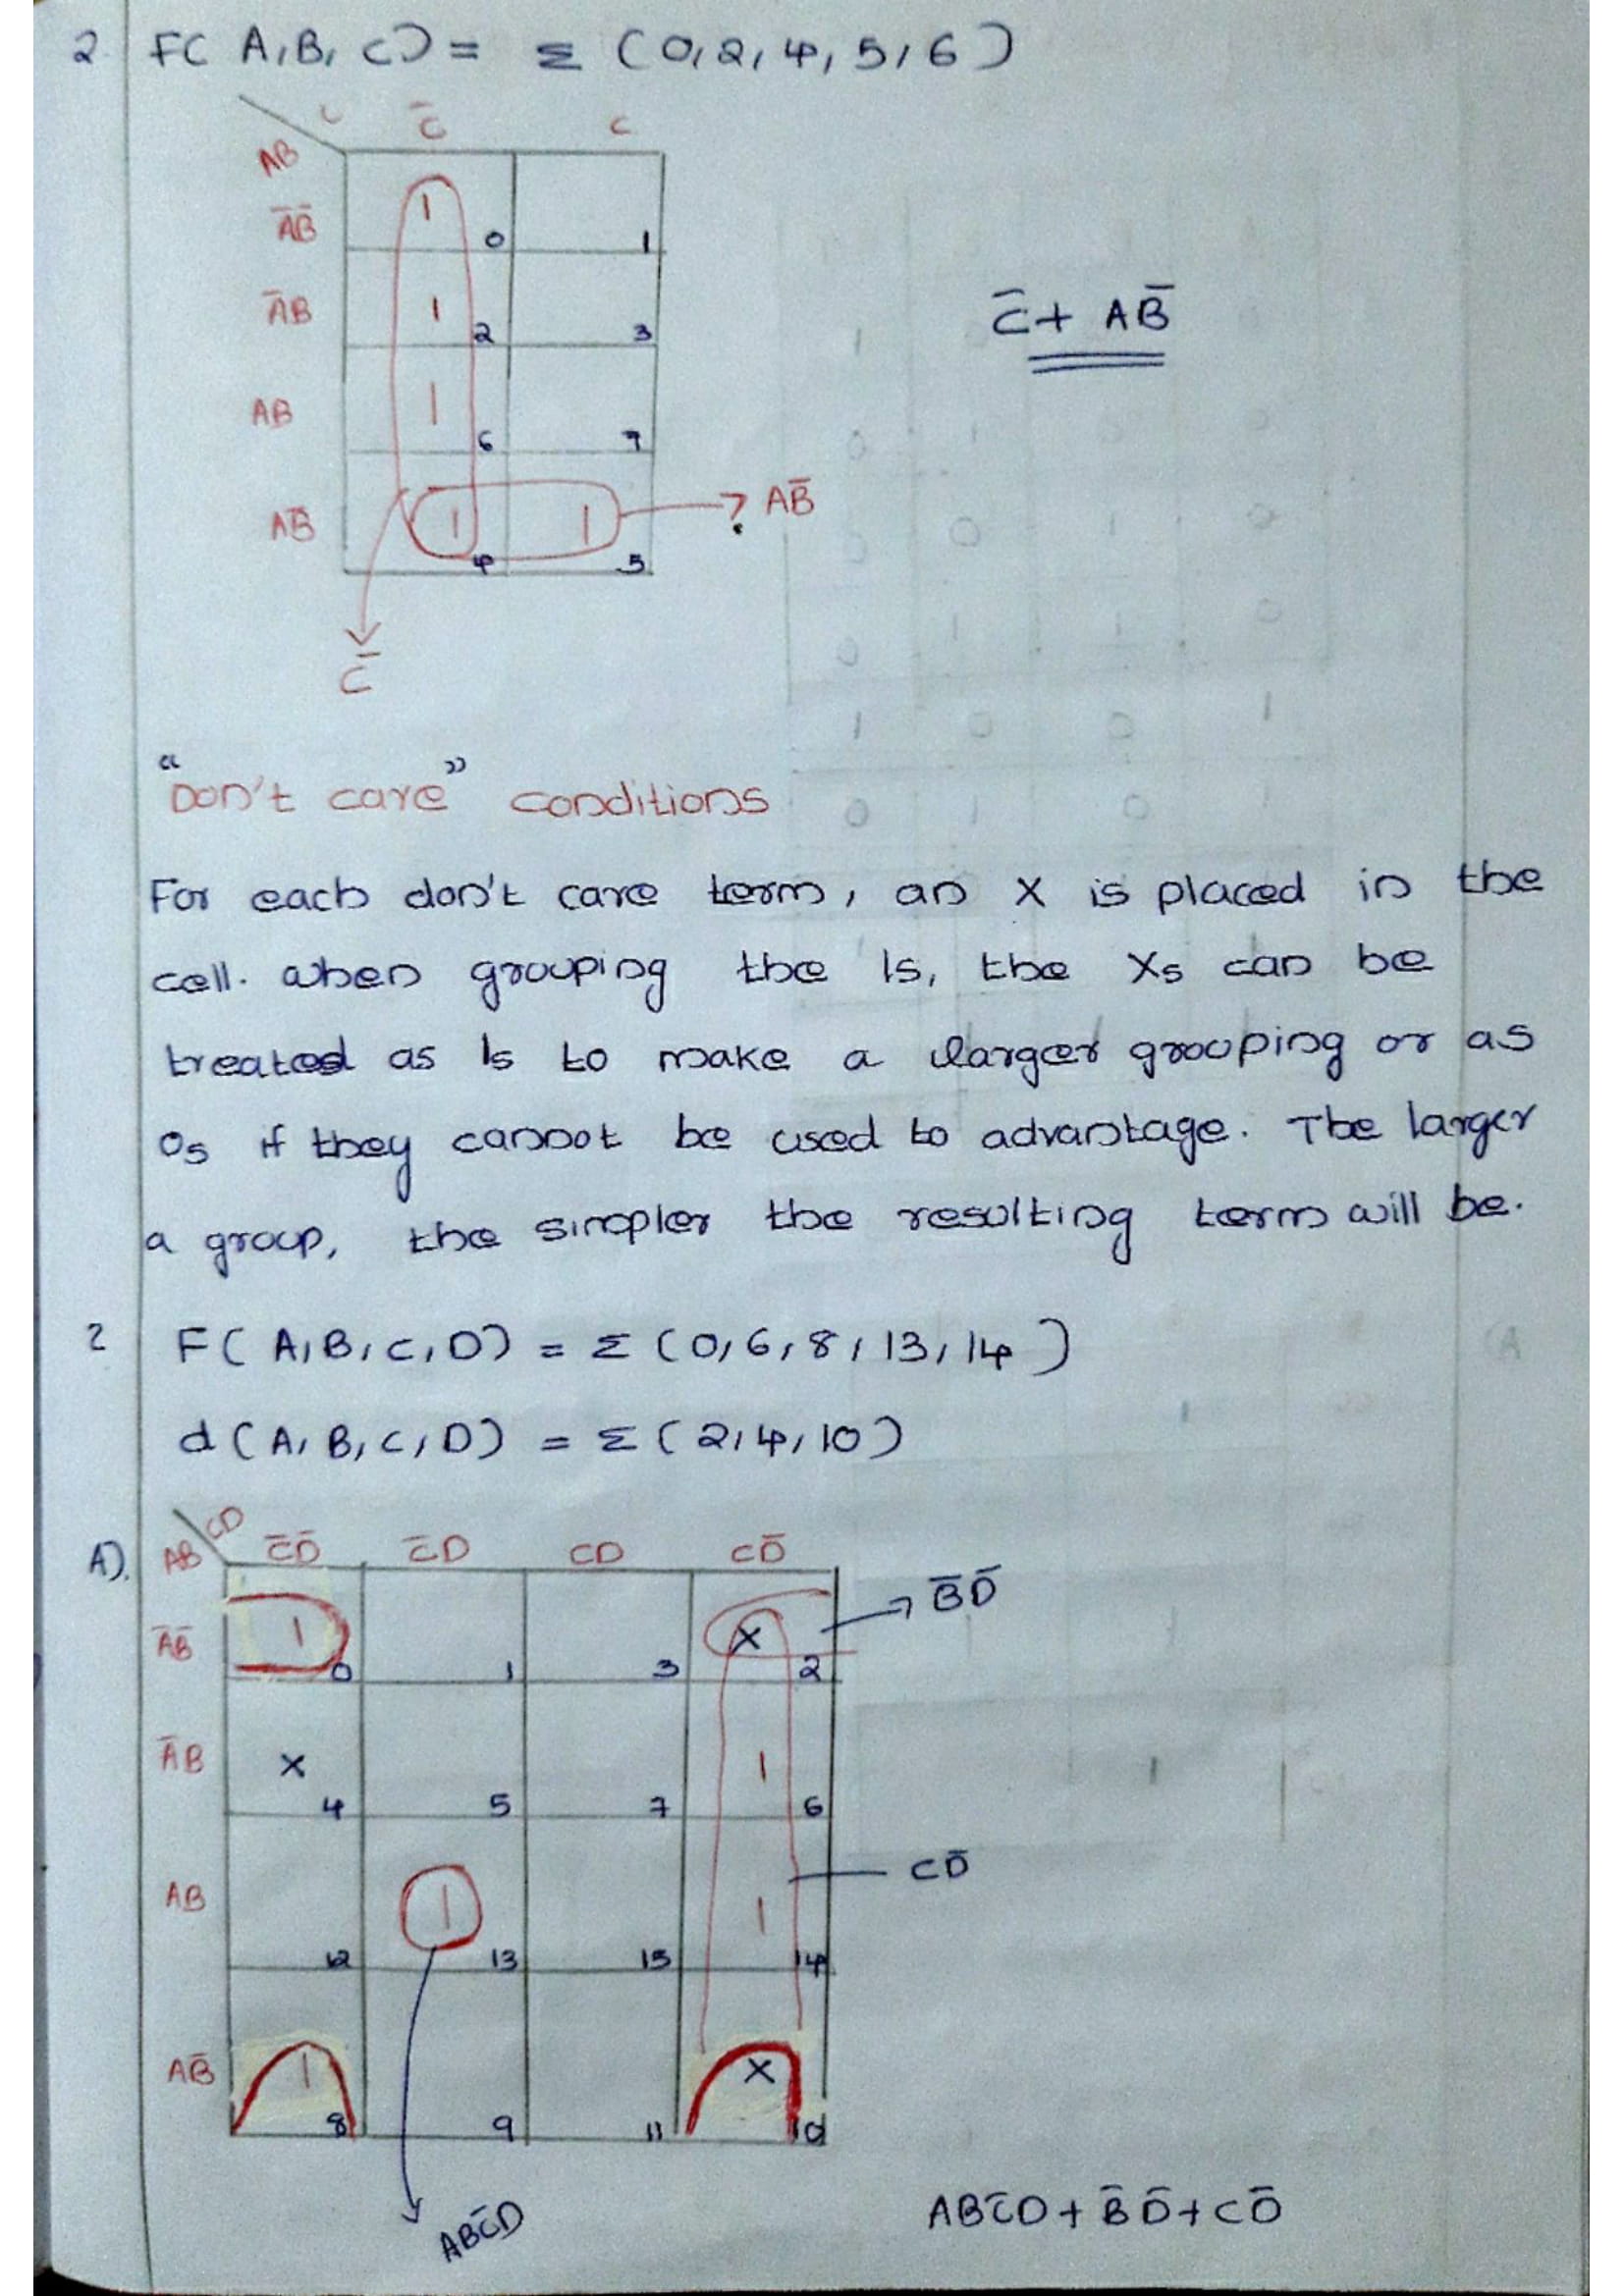 2 F( A, B, C) = Σ (0, 2, 4, 5, 6)
C C̅ C
AB
A̅B̅ 1 0 1
A̅B 1 2 3
C̅ + AB̅
AB 1 6 7
AB̅ 1 4 1 5 ? AB̅
C̅
"Don't care" conditions
For each don't care term, an X is placed in the
cell. when grouping the 1s, the Xs can be
treated as 1s to make a larger grouping or as
0s if they cannot be used to advantage. The larger
a group, the simpler the resulting term will be.
2 F( A, B, C, D) = Σ (0, 6, 8, 13, 14)
d (A, B, C, D) = Σ (2, 4, 10)
A). AB CD C̅D̅ C̅D CD CD̅
A̅B̅ 1 0 1 3 X 2 B̅D̅
A̅B X 4 5 7 1 6
AB 12 1 13 15 1 14 CD̅
AB̅ 1 8 9 11 X 10
ABC̅D
ABC̅D + B̅D̅ + CD̅